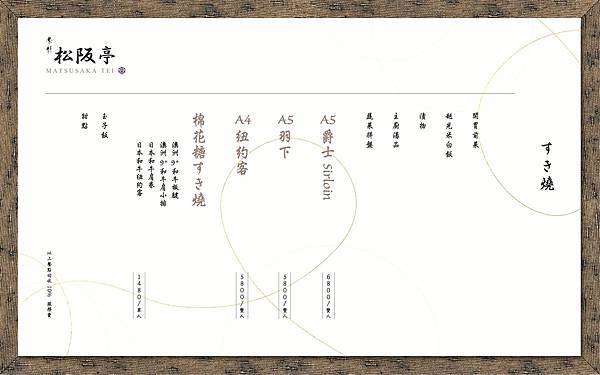 紫艷
松阪亭
MATSUSAKA TEI
すき燒
開胃前菜
越光米白飯
漬物
主廚湯品
蔬菜拼盤
A5 爵士 Sirloin
6800/雙人
A5 羽下
5800/雙人
A4 紐約客
5800/雙人
棉花糖すき燒
澳洲 9⁺ 和牛板腱
澳洲 9⁺ 和牛肩小排
日本和牛肩卷
日本和牛紐約客
1480/單人
玉子飯
甜點
以上餐點均收 10% 服務費